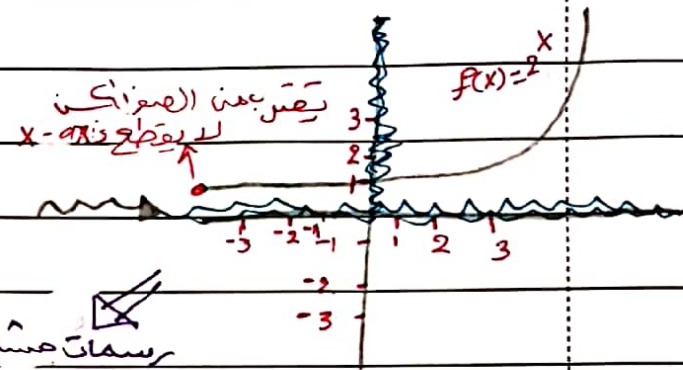 f(x)=2^x
يقترب من الصفر لكن
لا يقطع x-axis
3
2
1
-3 -2 -1 -1 1 2 3
-2
-3
رسمات